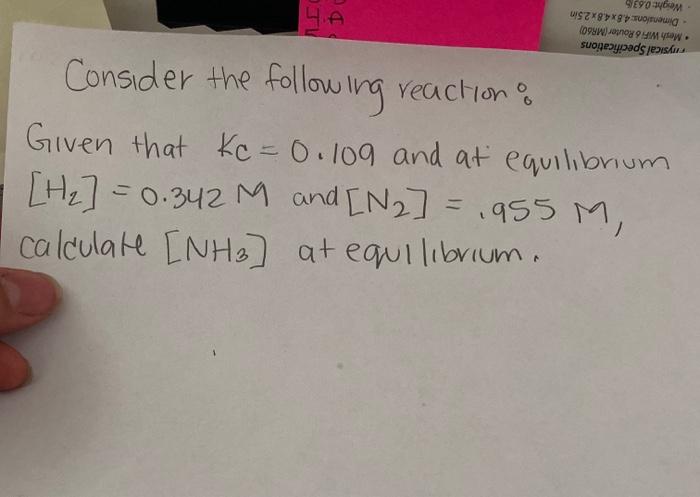 4.A
Physical Specifications
• Mesh WiFi 6 Router (MR60)
- Dimensions: 4.8 x 4.8 x 2.5in
- Weight: 0.63lb
Consider the following reaction:
Given that Kc = 0.109 and at equilibrium
[H₂] = 0.342 M and [N₂] = .955 M,
calculate [NH₃] at equilibrium.